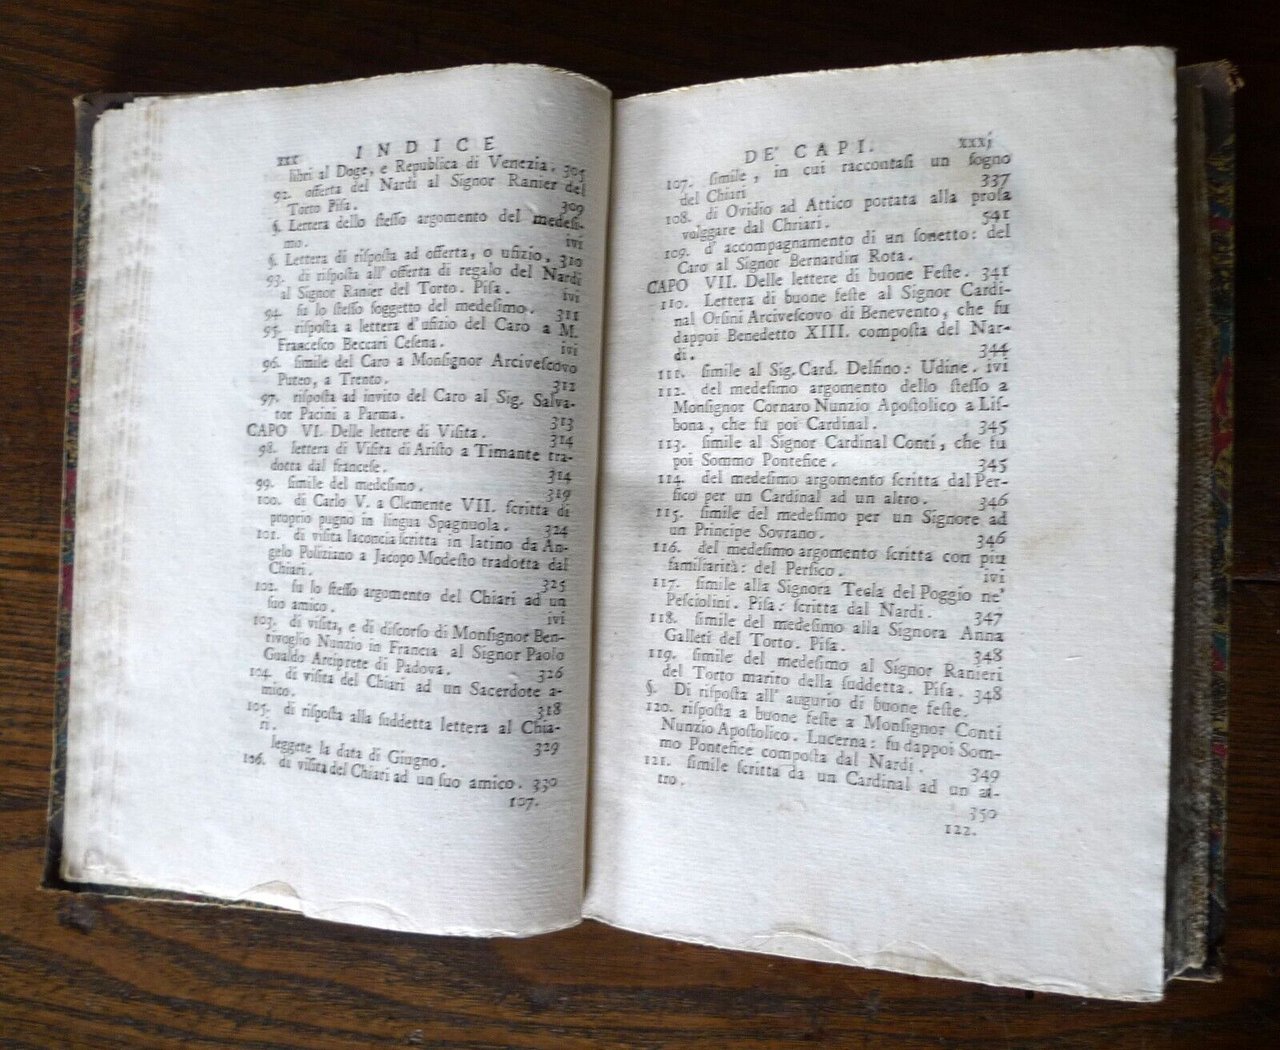 xxx INDICE
libri al Doge, e Republica di Venezia. 305
92. offerta del Nardi al Signor Ranier del
Torto Pisa. 309
§. Lettera dello ſteſſo argomento del medeſi-
mo. ivi
§. Lettera di riſpoſta ad offerta, o ufizio, 310
93. di riſpoſta all' offerta di regalo del Nardi
al Signor Ranier del Torto. Piſa. ivi
94. ſu lo ſteſſo ſoggetto del medeſimo. 311
95. riſpoſta a lettera d'ufizio del Caro a M.
Franceſco Beccari Ceſena. ivi
96. ſimile del Caro a Monſignor Arciveſcovo
Puteo, a Trento. 312
97. riſpoſta ad invito del Caro al Sig. Salva-
tor Pacini a Parma. 313
CAPO VI. Delle lettere di Viſita. 314
98. lettera di Viſita di Ariſto a Timante tra-
dotta dal franceſe. 314
99. ſimile del medeſimo. 319
100. di Carlo V. a Clemente VII. ſcritta di
proprio pugno in lingua Spagnuola. 324
101. di viſita laconcia ſcritta in latino da An-
gelo Poliziano a Jacopo Modeſto tradotta dal
Chiari. 325
102. ſu lo ſteſſo argomento del Chiari ad un
ſuo amico. ivi
103. di viſita, e di diſcorſo di Monſignor Ben-
tivoglio Nunzio in Francia al Signor Paolo
Gualdo Arciprete di Padova. 326
104. di viſita del Chiari ad un Sacerdote a-
mico. 318
105. di riſpoſta alla ſuddetta lettera al Chia-
ri. 329
leggete la data di Giugno.
106. di viſita del Chiari ad un ſuo amico. 330
107.
DE' CAPI. xxxj
107. ſimile, in cui raccontaſi un ſogno
del Chiari 337
108. di Ovidio ad Attico portata alla proſa
volggare dal Chriari. 541
109. d' accompagnamento di un ſonetto: del
Caro al Signor Bernardin Rota.
CAPO VII. Delle lettere di buone Feſte. 341
110. Lettera di buone feſte al Signor Cardi-
nal Orſini Arciveſcovo di Benevento, che fu
dappoi Benedetto XIII. compoſta del Nar-
di. 344
111. ſimile al Sig. Card. Delfino: Udine. ivi
112. del medeſimo argomento dello ſteſſo a
Monſignor Cornaro Nunzio Apoſtolico a Liſ-
bona, che fu poi Cardinal. 345
113. ſimile al Signor Cardinal Conti, che fu
poi Sommo Pontefice. 345
114. del medeſimo argomento ſcritta dal Per-
ſico per un Cardinal ad un altro. 346
115. ſimile del medeſimo per un Signore ad
un Principe Sovrano. 346
116. del medeſimo argomento ſcritta con più
familiarità: del Perſico. ivi
117. ſimile alla Signora Tecla del Poggio ne'
Peſciolini. Piſa: ſcritta dal Nardi. 347
118. ſimile del medeſimo alla Signora Anna
Galleti del Torto. Piſa. 348
119. ſimile del medeſimo al Signor Ranieri
del Torto marito della ſuddetta. Piſa. 348
§. Di riſpoſta all' augurio di buone feſte.
120. riſpoſta a buone feſte a Monſignor Conti
Nunzio Apoſtolico. Lucerna: fu dappoi Som-
mo Pontefice compoſta dal Nardi. 349
121. ſimile ſcritta da un Cardinal ad un al-
tro. 350
122.